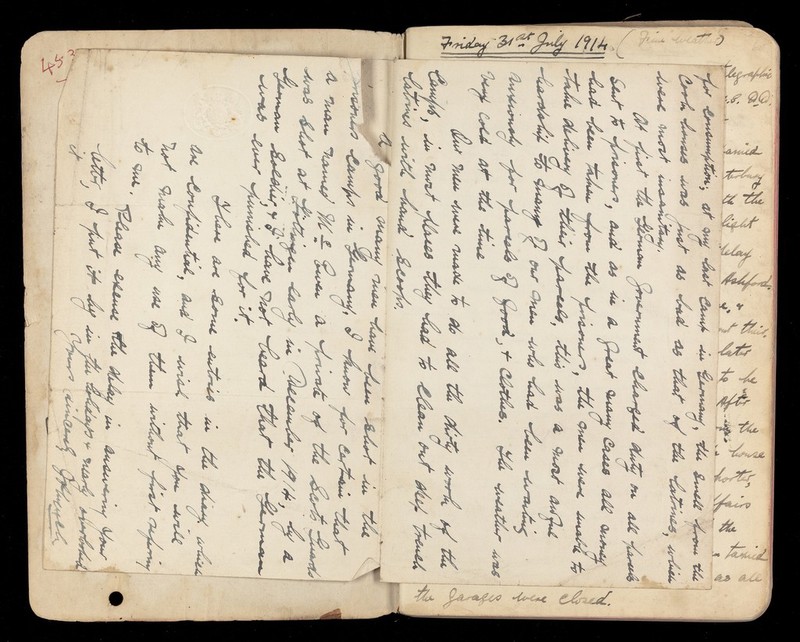 45
Friday 31st July 1914 (Fine
telegraphic
the
light
delay
Ashfords
this
later
to be
After
the
house
the
as all
the garages were closed.
for consumption, at my last Camp in Germany, the smell from the
Cook houses was just as bad as that of the latrines, which
were most insanitary.
At first the German Government charged duty on all parcels
sent to prisoners, and as in a great many cases all money
had been taken from the prisoners, the men were unable to
take delivery of their parcels, this was a most awful
hardship to many of our men who had been waiting
anxiously for parcels of food, & clothes. The weather was
very cold at the time
Our men were made to do all the dirty work of the
Camps, in most places they had to clean out their trench
latrines with hand scoops.
A good many men have been shot in the
prisoners camps in Germany, I know for certain that
a man named McEwen a private of the Scots Guards
was shot at Gottingen early in December 1914, by a
German Soldier, & I have not heard that the German
was ever punished for it.
There are some entries in the diary which
are confidential, and I wish that you will
not make any use of them without first referring
to me.
Please excuse the delay in answering your
letter, I put it by in the holidays & nearly overlooked
it
Yours sincerely